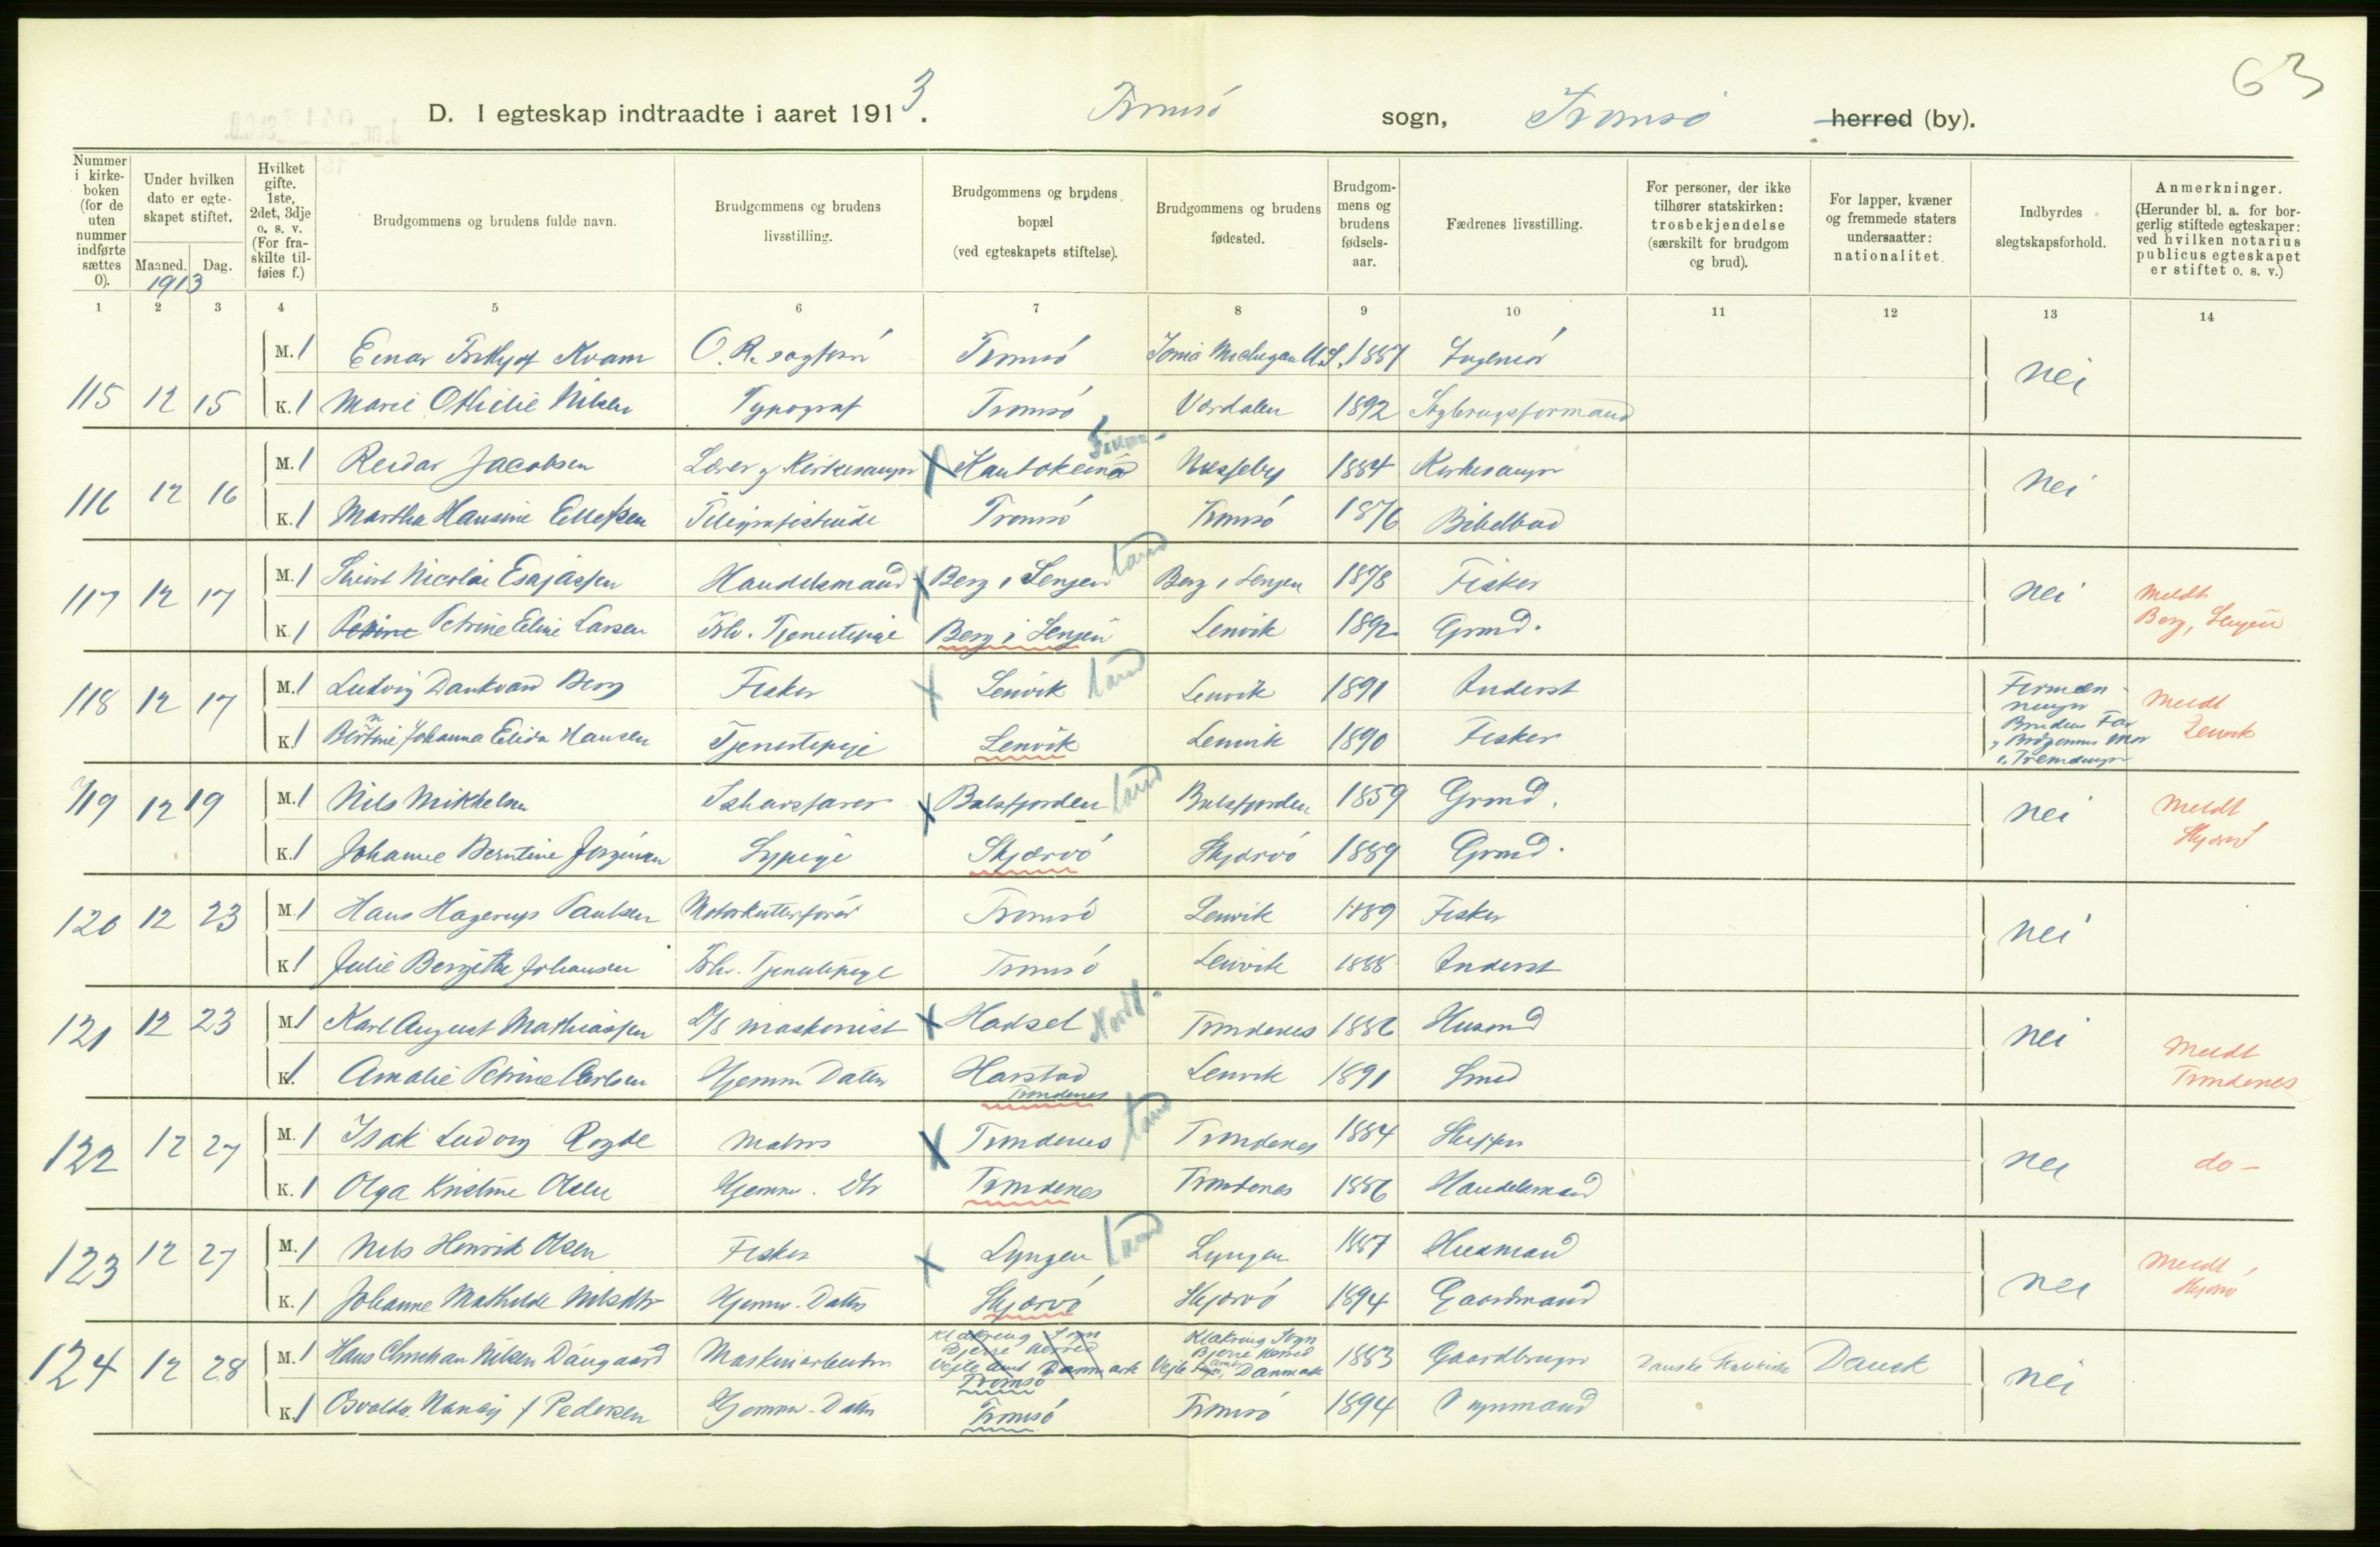 63
D. I egteskap indtraadte i aaret 1913. Tromsö sogn, Tromsö herred (by).
Nummer i kirke-boken (for de uten nummer indførte sættes 0).
Under hvilken dato er egte-skapet stiftet.
Maaned. Dag.
1913
Hvilket gifte. 1ste, 2det, 3dje o. s. v. (For fra-skilte til-føies f.)
Brudgommens og brudens fulde navn.
Brudgommens og brudens livsstilling.
Brudgommens og brudens bopæl (ved egteskapets stiftelse).
Brudgommens og brudens fødested.
Brudgom-mens og brudens fødsels-aar.
Fædrenes livsstilling.
For personer, der ikke tilhører statskirken: trosbekjendelse (særskilt for brudgom og brud).
For lapper, kvæner og fremmede staters undersaatter: nationalitet.
Indbyrdes slegtskapsforhold.
Anmerkninger. (Herunder bl. a. for bor-gerlig stiftede egteskaper: ved hvilken notarius publicus egteskapet er stiftet o. s. v.)
1 2 3 4 5 6 7 8 9 10 11 12 13 14
M. 1 Einar Kvam O. R. sagförer Tromsö Ionia Michigan U.S. 1887 Ingeniör
115 12 15 K. 1 Marie Othilie Nilsen Typograf Tromsö Værdalen 1892 Sagbrugsformand nei
M. 1 Reidar Jacobsen Lærer og Kirkesanger Kautokeino Finm. Nesseby 1884 Kirkesanger
116 12 16 K. 1 Martha Hansine Ellefsen Telegrafistinde Tromsö Tromsö 1876 Bibelbud nei
M. 1 Nicolai Esajassen Handelsmand Berg i Senjen land Berg i Senjen 1878 Fisker
117 12 17 K. 1 Petrine Eline Larsen Fhv. Tjenestepige Berg i Senjen Lenvik 1892 Grmd. nei Meldt Berg, Senjen
M. 1 Ludvig Dankvard Berg Fisker Lenvik land Lenvik 1891 Inderst
118 12 17 K. 1 Johanna Elida Hansen Tjenestepige Lenvik Lenvik 1890 Fisker Brudens Far og Brudgommens Mor Meldt Lenvik
M. 1 Nils Mikkelsen Ishavsfarer Balsfjorden land Balsfjorden 1859 Grmd.
119 12 19 K. 1 Johanne Berntine Jörgensen Sypige Skjærvö Skjærvö 1889 Grmd. nei Meldt Skjærvö
M. 1 Hans Hagerup Paulsen Motorkutterförer Tromsö Lenvik 1889 Fisker
120 12 23 K. 1 Julie Bergitte Johansen Fhv. Tjenestepige Tromsö Lenvik 1888 Inderst nei
M. 1 Karl August Mathiassen D/S maskinist Hadsel Nordl. Trondenes 1886 Husmd
121 12 23 K. 1 Amalie Petrine Carlsen Hjemmev. Datter Harstad Trondenes Lenvik 1891 Smed nei Meldt Trondenes
M. 1 Isak Ludvig Rogde Matros Trondenes land Trondenes 1884 Skipper
122 12 27 K. 1 Olga Kristine Olsen Hjemmev. Dtr Trondenes Trondenes 1886 Handelsmand nei do —
M. 1 Nils Henrik Olsen Fisker Lyngen land Lyngen 1887 Husmand
123 12 27 K. 1 Johanne Mathilde Nilsdtr Hjemmev. Datter Skjærvö Skjærvö 1894 Gaardmand nei Meldt Skjærvö
M. 1 Hans Christian Nilsen Daugaard Maskinarbeider Klakring Sogn Bjerre Herred Vejle Amt Danmark Tromsö Klakring Sogn Bjerre Herred Vejle Amt, Danmark 1883 Gaardbruger Danske Statskirke Dansk
124 12 28 K. 1 Osvalda Nancy Pedersen Hjemmev. Datter Tromsö Tromsö 1894 nei